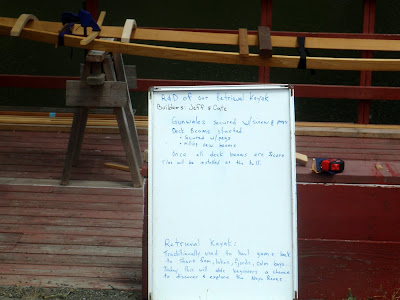 R&D of our Retrieval Kayak
Builders: Jeff & Cate
Gunwales secured w/screws & pegs
Deck Beams started
• Secured w/pegs
• new beams
Once all deck beams are Secure
ribs will be installed at the hull.
Retrieval Kayak:
Traditionally used to haul game back
to shore from lakes, fjords, calm bays.
Today this will able beginners a chance
to discover & explore the